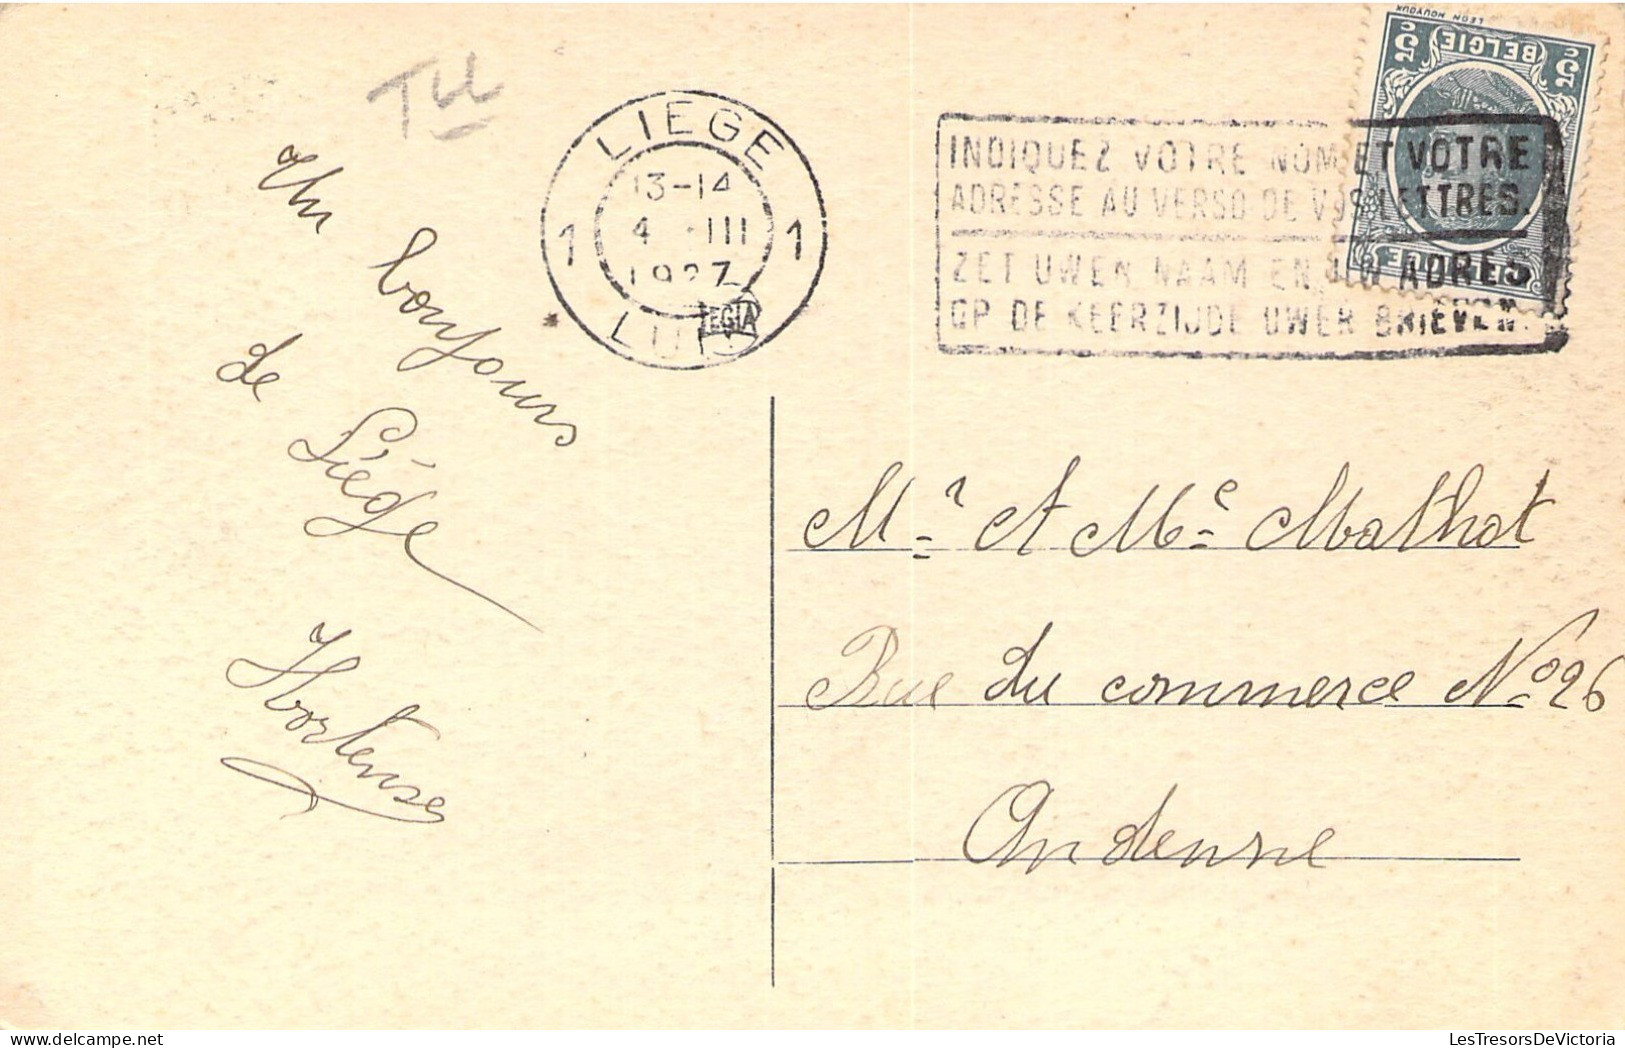 T
LIEGE
13-14
4 · III
1927
1 1
LUIK
EGIA
INDIQUEZ VOTRE NOM ET VOTRE
ADRESSE AU VERSO DE VOS LETTRES.
ZET UWEN NAAM EN UW ADRES
OP DE KEERZIJDE UWER BRIEVEN.
5c BELGIE 5c
BELGIQUE
LEON HOUYOUX
Un bonjours
de
Liége
Hortense
Mr et Me Mathot
Rue du commerce No 26
Andenne
LesTresorsDeVictoria